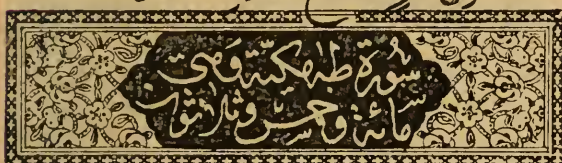 سورة طه مكية وهى
مائة وخمس وثلاثون